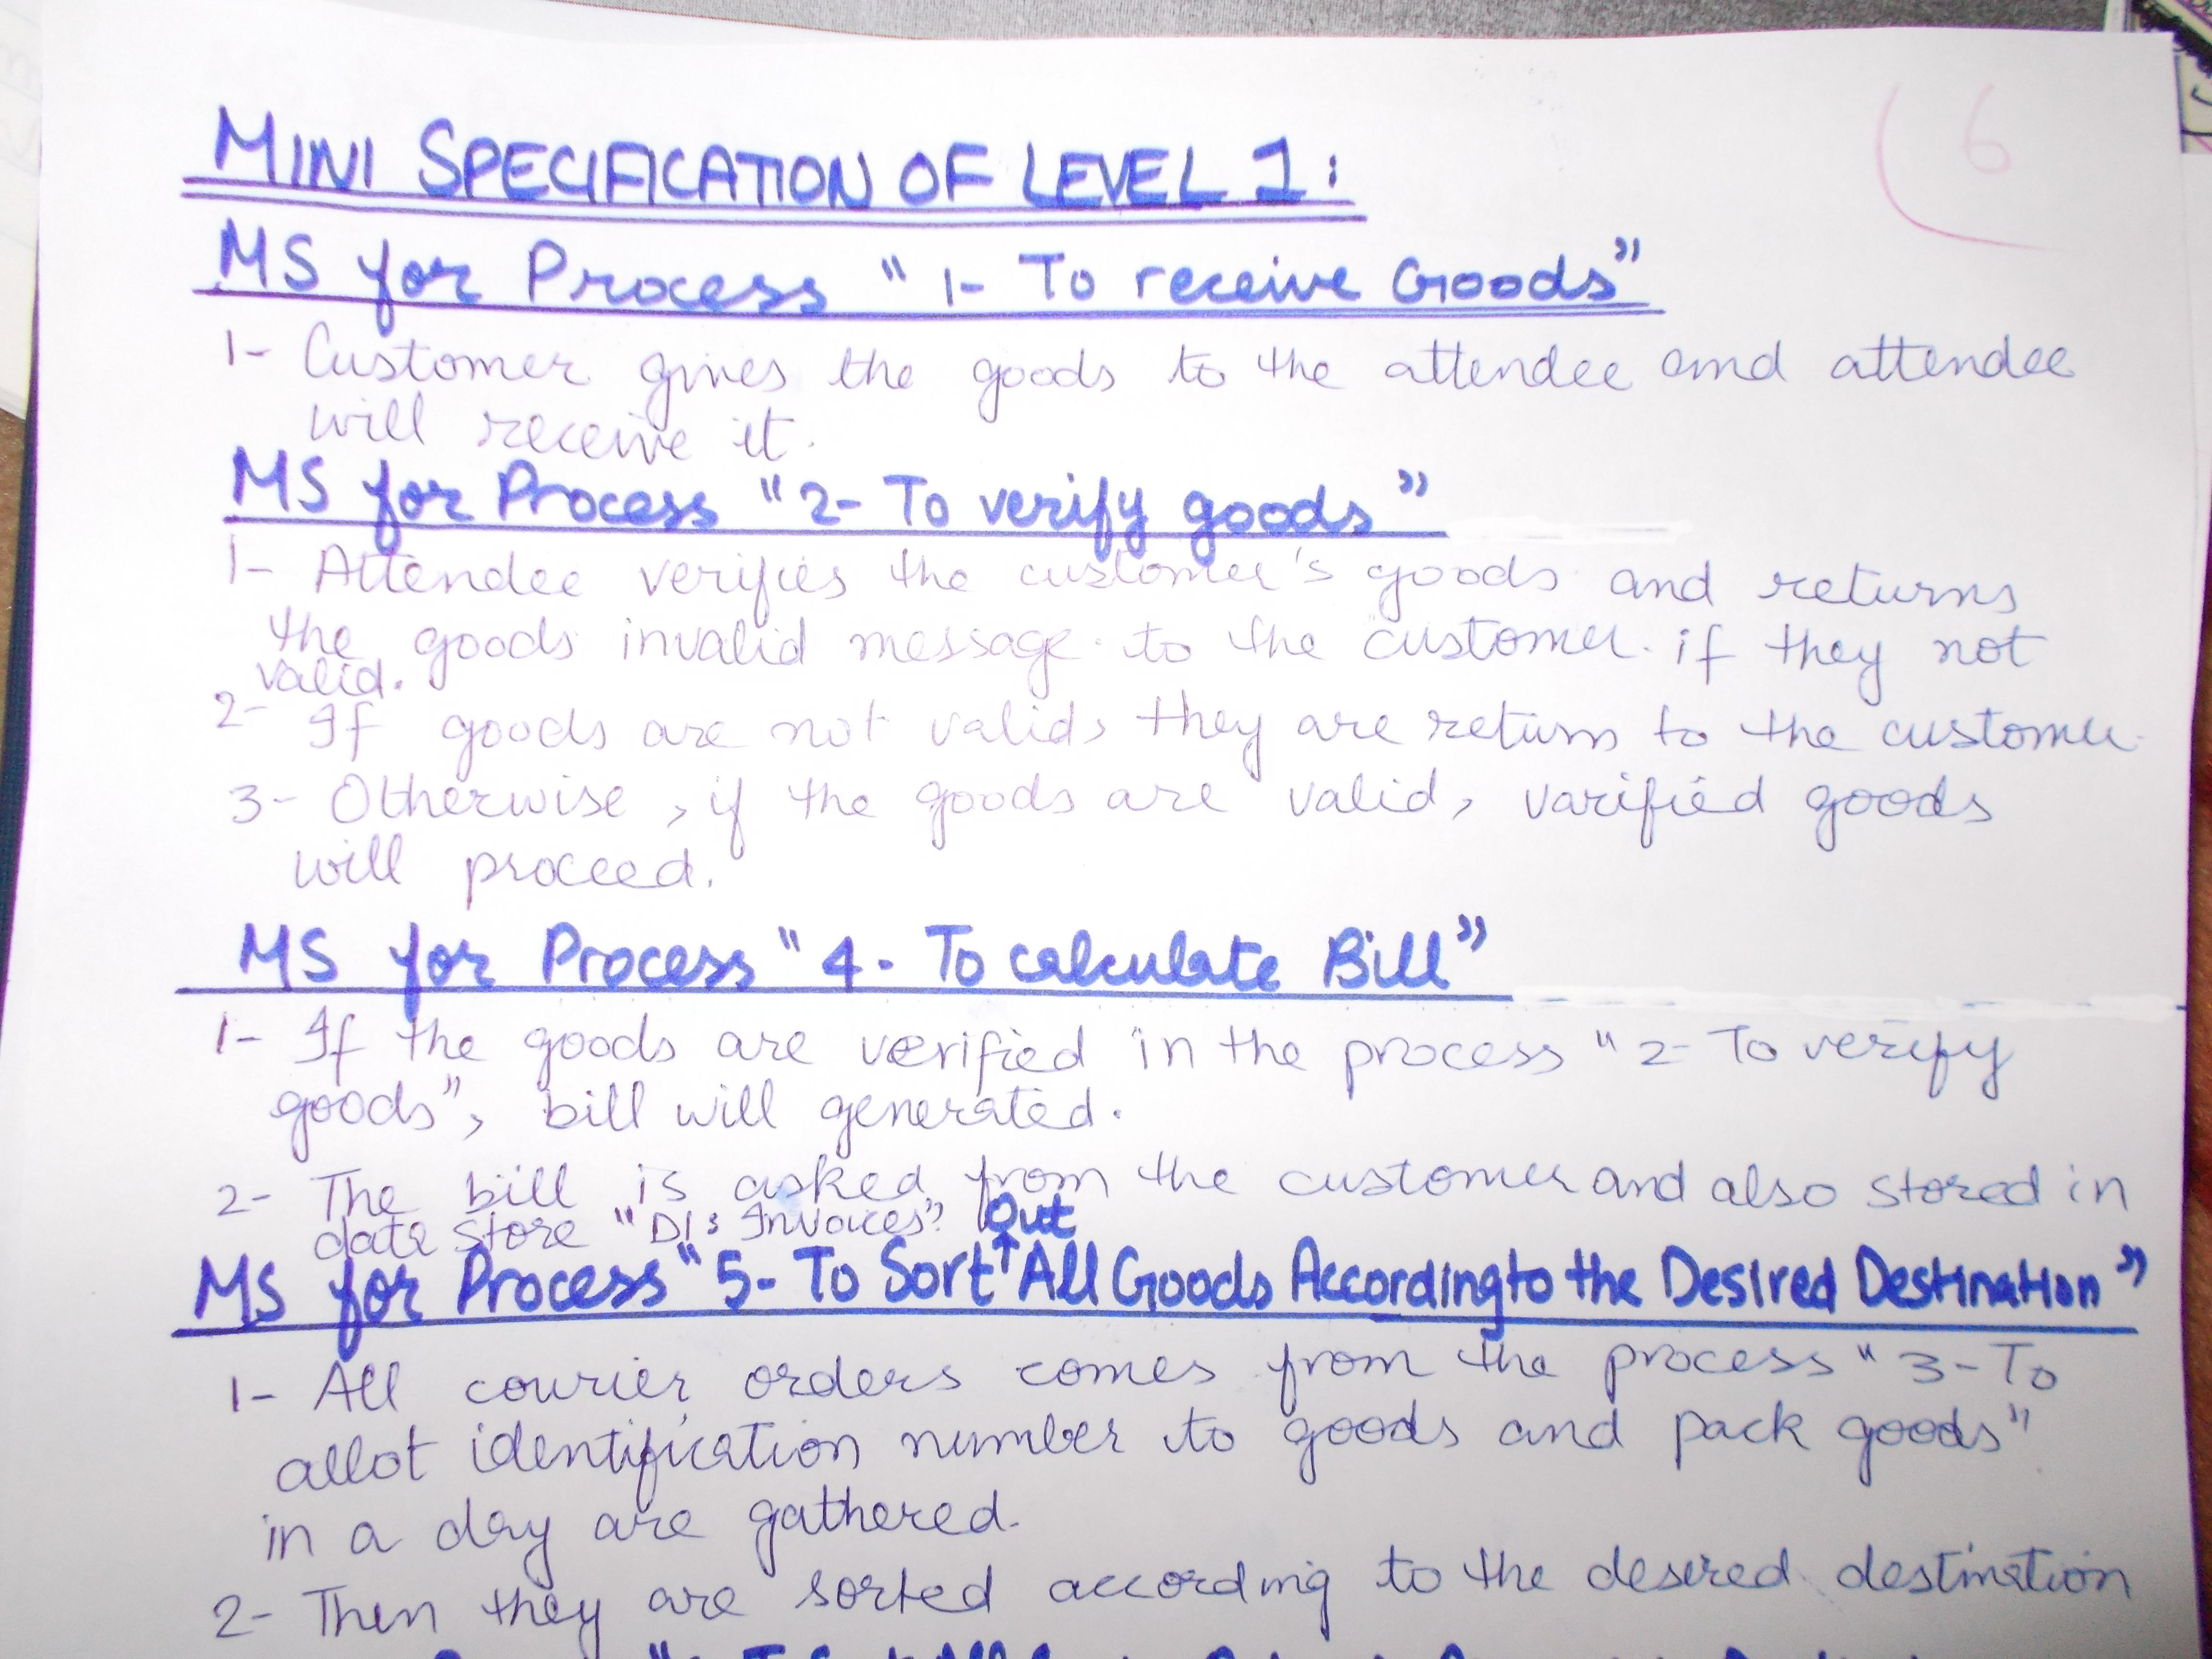 6
MINI SPECIFICATION OF LEVEL 1:
MS for Process "1- To receive Goods"
1- Customer gives the goods to the attendee and attendee
will receive it.
MS for Process "2- To verify goods"
1- Attendee verifies the customer's goods and returns
the goods invalid message to the customer if they not
valid.
2- If goods are not valid, they are return to the customer
3- Otherwise, if the goods are valid, varified goods
will proceed.
MS for Process "4- To calculate Bill"
1- If the goods are verified in the process "2- To verify
goods", bill will generated.
2- The bill is asked from the customer and also stored in
date store "D1: Invoices"
Out
MS for Process "5- To Sort All Goods According to the Desired Destination"
1- All courier orders comes from the process "3-To
allot identification number to goods and pack goods"
in a day are gathered.
2- Then they are sorted according to the desired destination